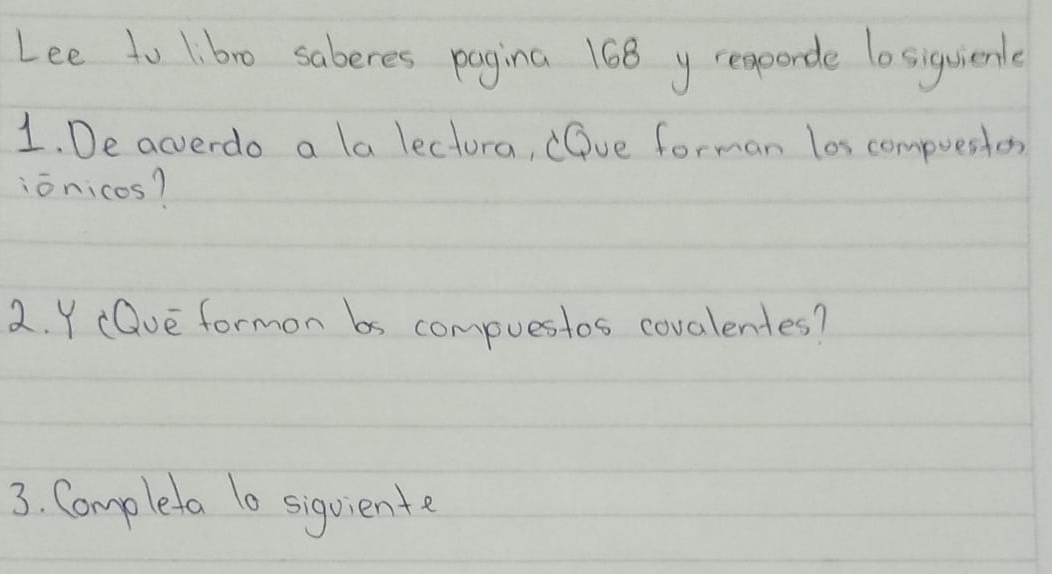 Lee tu libro saberes pagina 168 y responde lo siguiente
1. De acuerdo a la lectura, ¿Que forman los compuestos
iónicos?
2. Y ¿Qué forman los compuestos covalentes?
3. Completa lo siguiente